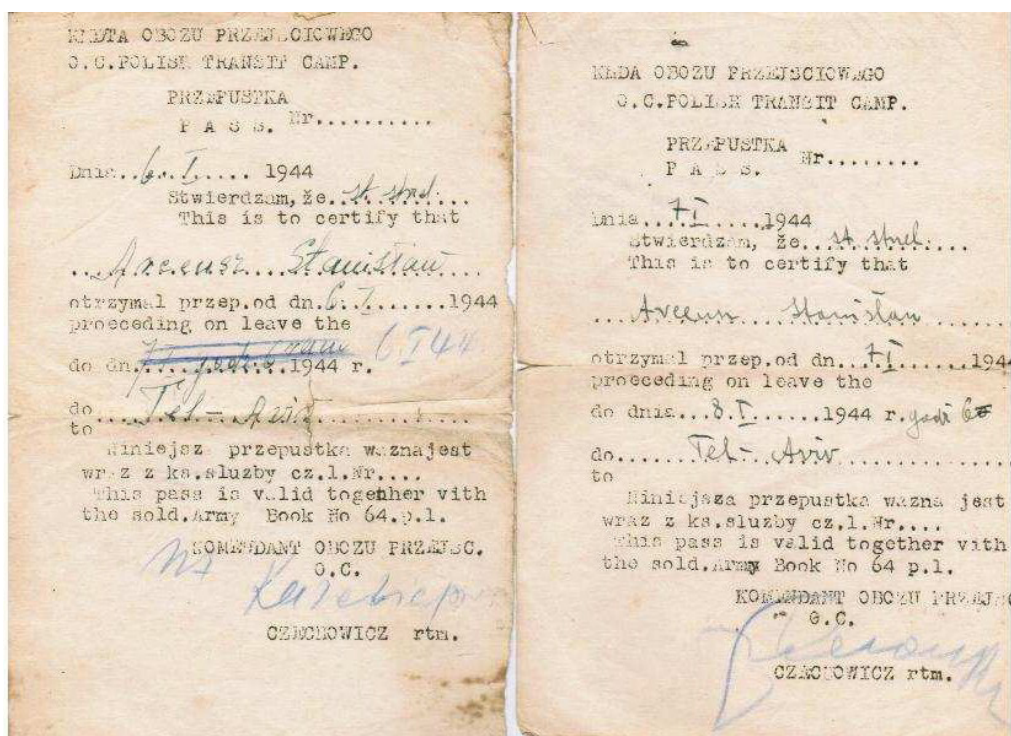 KMDTA OBOZU PRZEJSCIOWEGO
O.C.POLISH TRANSIT CAMP.
PRZEPUSTKA
P A S S. Nr..........
Dnia..6.I..... 1944
Stwierdzam, że..st. strz.....
This is to certify that
..Arceusz...Stanisław...
otrzymal przep.od dn.6.I.......1944
proeceding on leave the
do dn..............1944 r. 6 I 44
do....Tel-Aviv..............
to
Niniejsza przepustka waznajest
wraz z ks.sluzby cz.l.Nr....
This pass is valid together vith
the sold.Army Book No 64.p.l.
KOMENDANT OBOZU PRZEJSC.
O.C.
CZECHOWICZ rtm.
KMDA OBOZU PRZEJSCIOWEGO
O.C.POLISH TRANSIT CAMP.
PRZEPUSTKA
P A S S. Nr........
Dnia....7 I.....1944
Stwierdzam, że...st. strz.....
This is to certify that
....Arceusz....Stanisław......
otrzymal przep.od dn..7 I......1944
proeceding on leave the
do dnia...8.I.......1944 r. godz 6
do.......Tel-Aviv............
to
Niniejsza przepustka wazna jest
wraz z ks.sluzby cz.l.Nr....
This pass is valid together vith
the sold.Army Book No 64 p.l.
KOMENDANT OBOZU PRZEJSC
O.C.
CZACHOWICZ rtm.